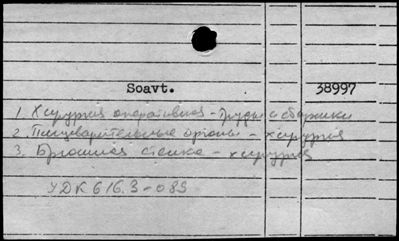 Soavt. 38997
1. Хирургия оперативная - Труды и сборники
2. Пищеварительные органы - хирургия
3. Брюшная стенка - хирургия
УДК 616.3-089